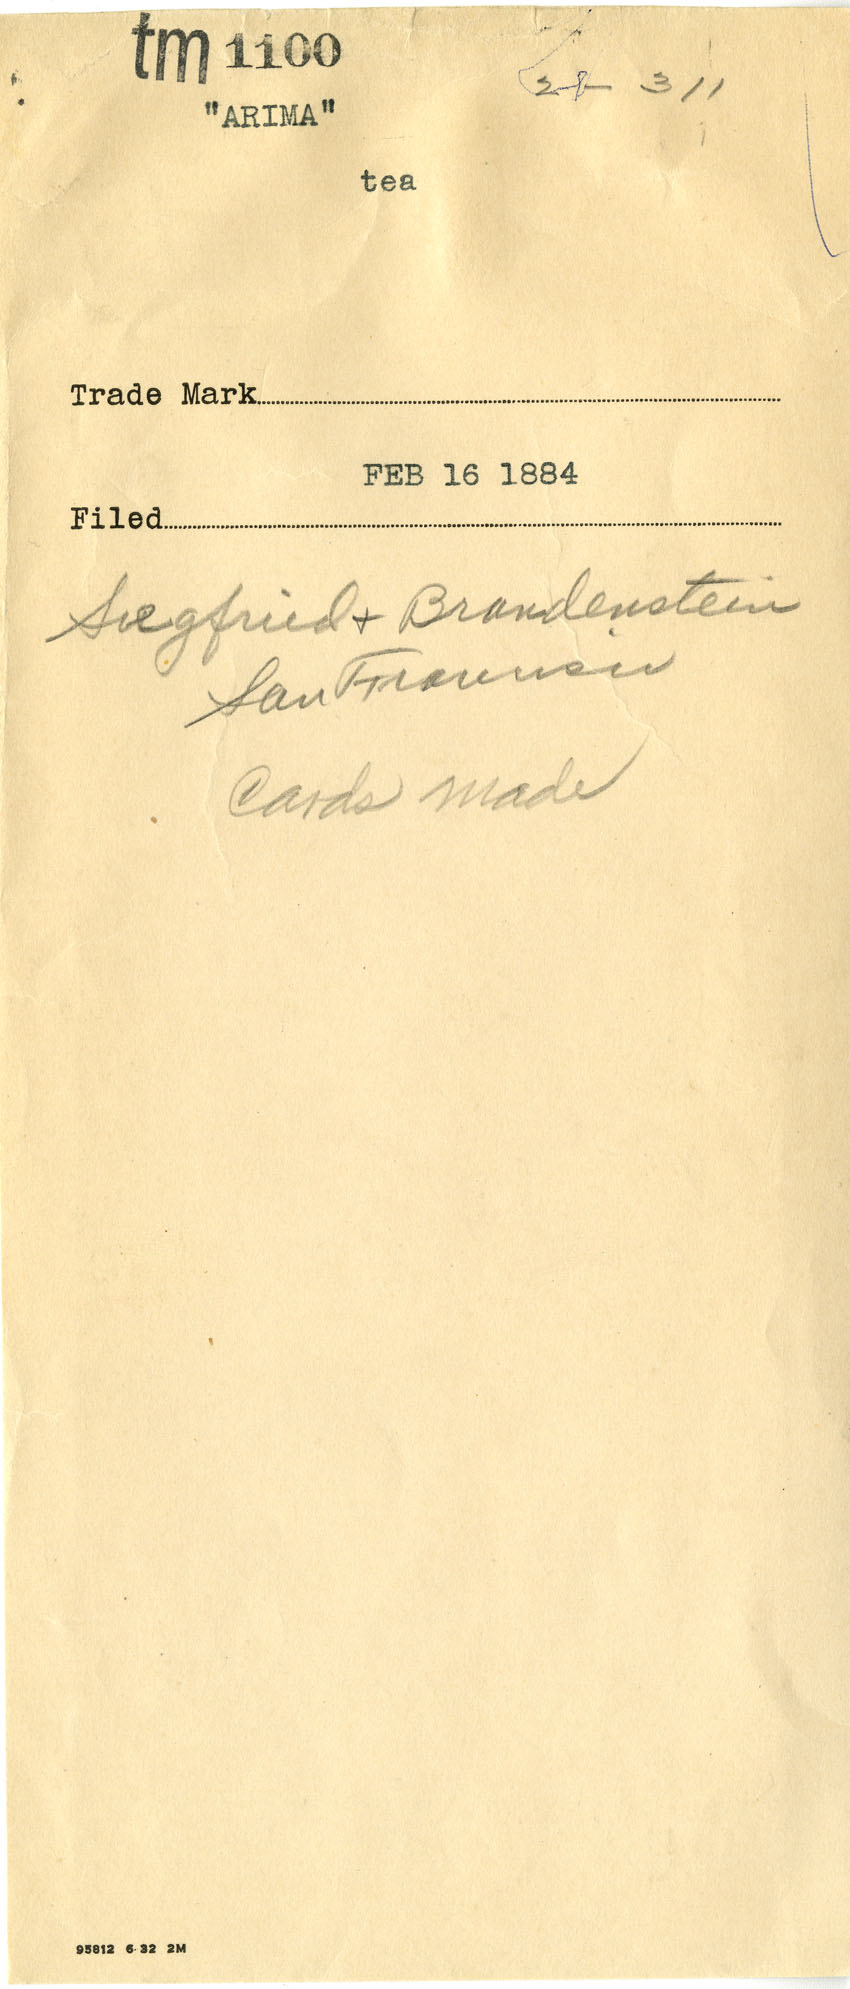 tm 1100
3 11
"ARIMA"
tea
Trade Mark
FEB 16 1884
Filed
Siegfried + Brandenstein
San Francisco
Cards made
95812 6-32 2M